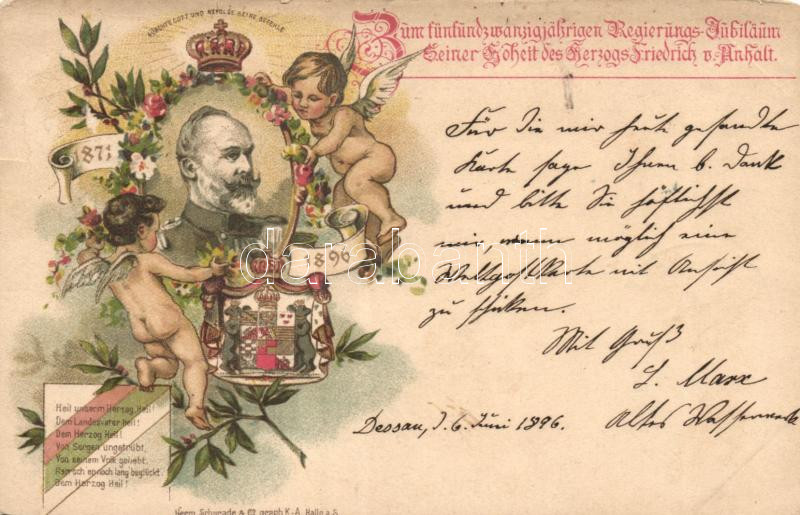 FÜRCHTE GOTT UND BEFOLGE SEINE BEFEHLE.
Zum fünfundzwanzigjährigen Regierungs-Jubiläum
Seiner Hoheit des Herzogs Friedrich v. Anhalt.
1871
1896
Für die mir heute gesandte
Karte sage Ihnen b. Dank
und bitte Sie höflichst
mir, wenn möglich eine
Weltpostkarte mit Ansicht
zu schicken.
Mit Gruß
L. Marx
Altes Wasserwerk
Dessau, d. 6. Juni 1896.
Heil unserm Herzog, Heil!
Dem Landesvater heil!
Dem Herzog Heil!
Von Sorgen ungetrübt,
Von seinem Volk geliebt,
Herrsch er noch lang beglückt.
Dem Herzog Heil!
Herm. Schwade & Co graph. K.-A. Halle a.S.
darabanth